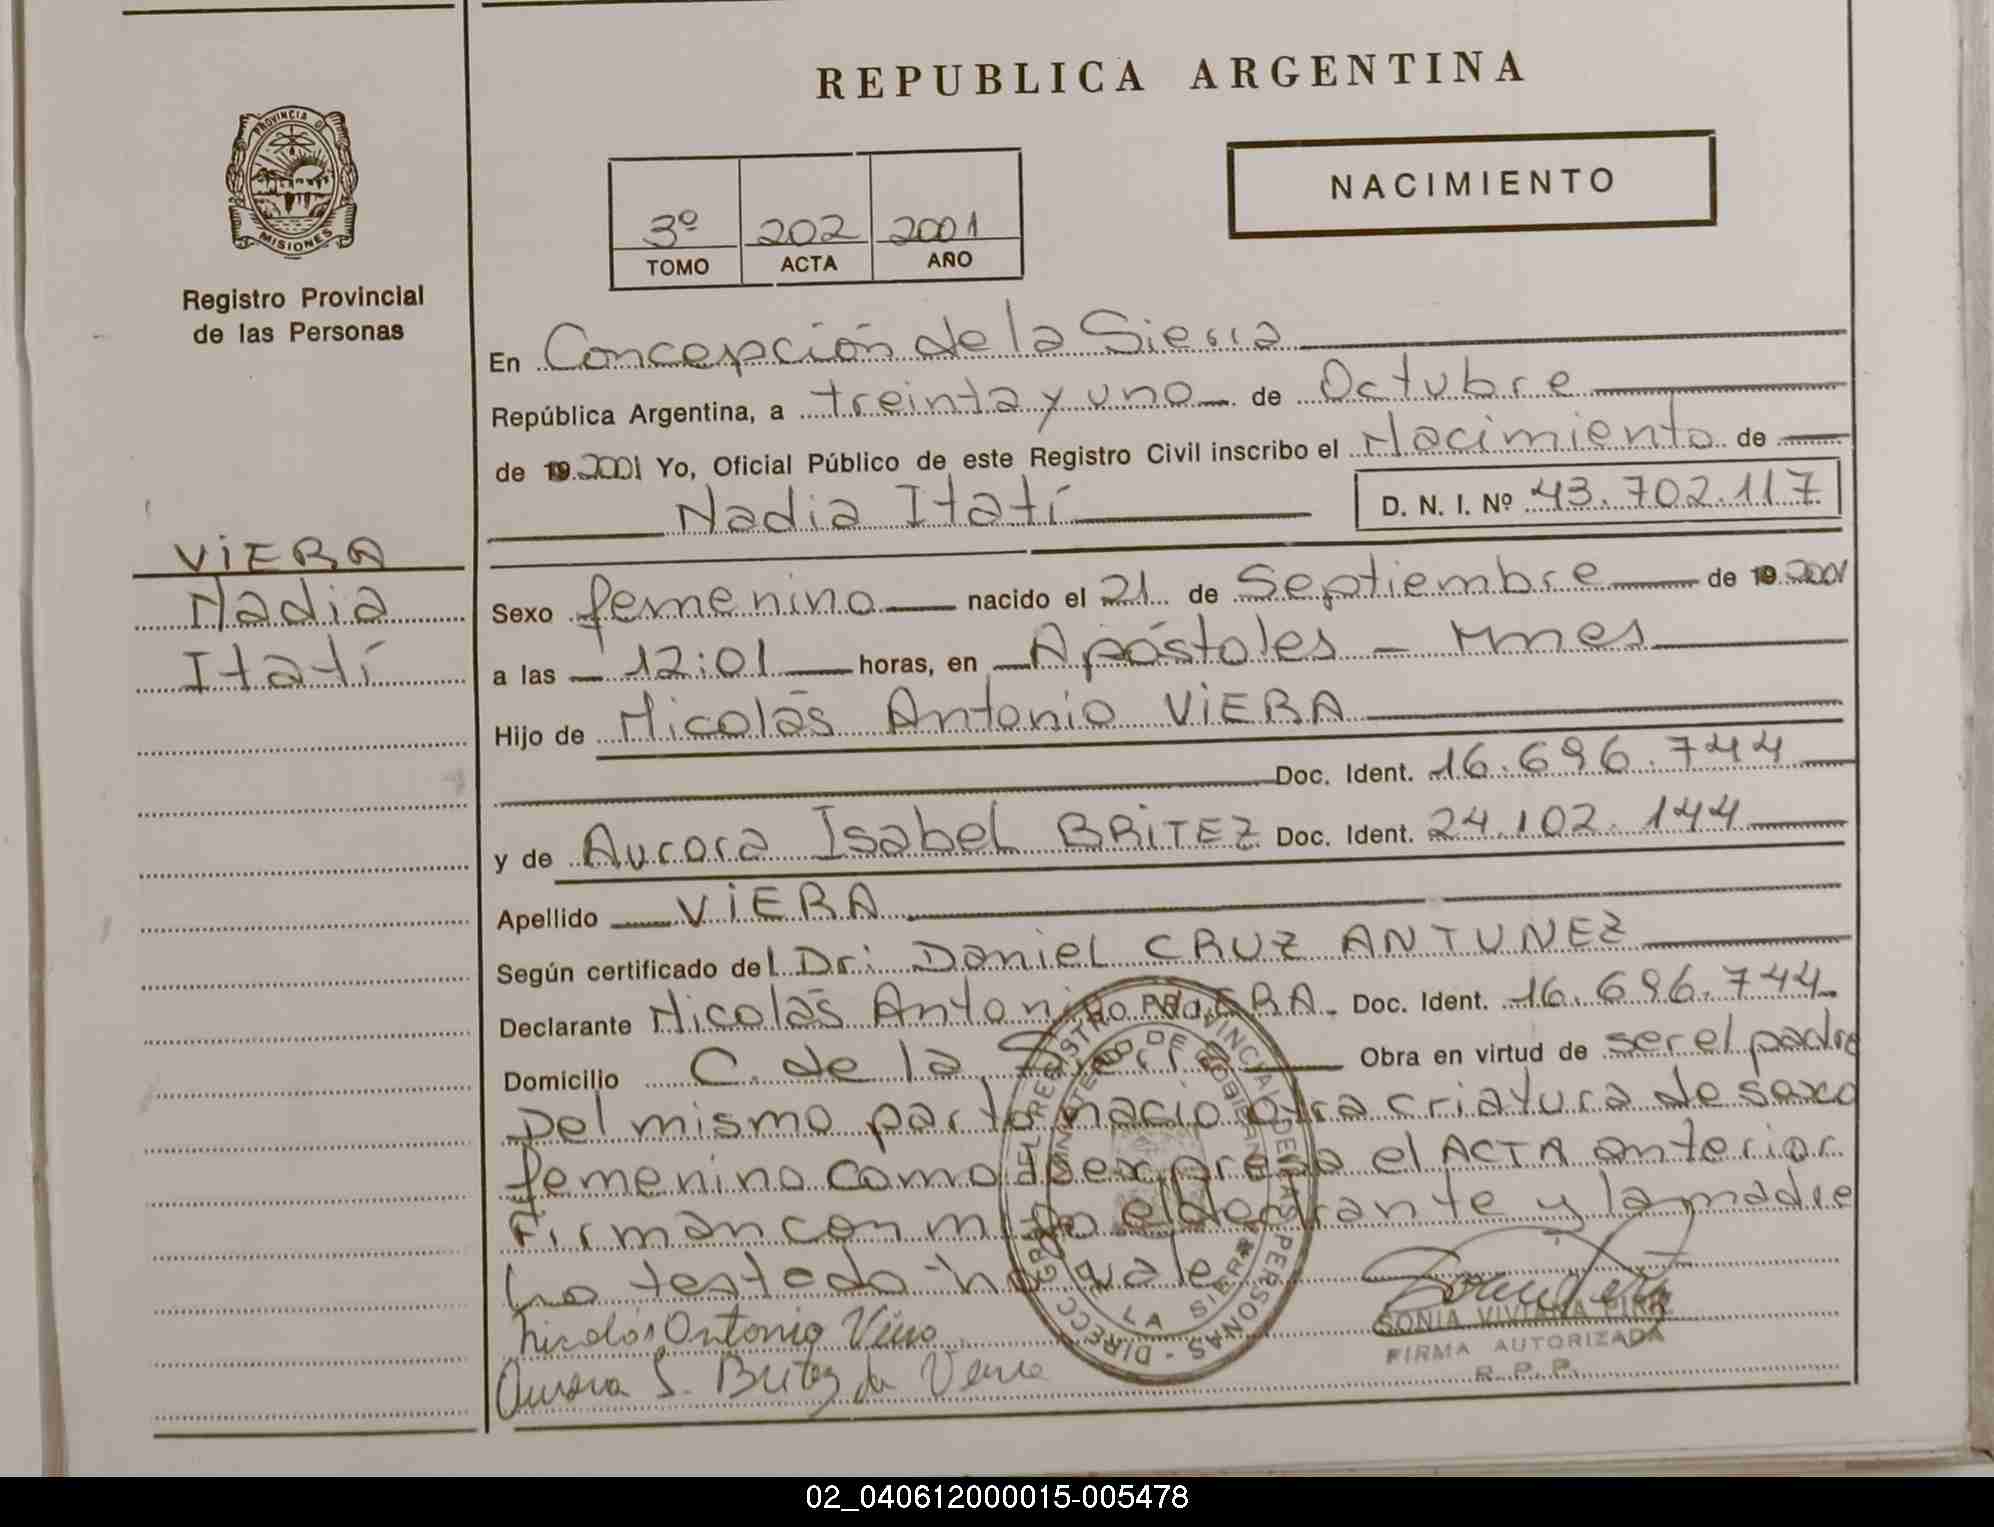 REPUBLICA ARGENTINA
PROVINCIA DE
MISIONES
Registro Provincial
de las Personas
NACIMIENTO
3º 202 2001
TOMO ACTA AÑO
En Concepción de la Sierra
República Argentina, a treinta y uno de Octubre
de 19 2001 Yo, Oficial Público de este Registro Civil inscribo el Nacimiento de
Nadia Itatí D. N. I. Nº 43.702.117
VIERA
Nadia
Itatí
Sexo femenino nacido el 21 de Septiembre de 19 2001
a las 12:01 horas, en Apóstoles - Mnes
Hijo de Nicolás Antonio VIERA
Doc. Ident. 16.696.744
y de Aurora Isabel BRITEZ Doc. Ident. 24.102.144
Apellido VIERA
Según certificado del Dr: Daniel CRUZ ANTUNEZ
Declarante Nicolás Antonio VIERA. Doc. Ident. 16.696.744
Domicilio C. de la Sierra Obra en virtud de ser el padre
Del mismo parto nacio otra criatura de sexo
femenino como lo expresa el ACTA anterior
Firman conmigo el declarante y la madre
Lo testado no vale
Nicolás Antonio Viera
Aurora I. Britez de Viera
DIRECC. GRAL. DEL REGISTRO PROVINCIAL DE LAS PERSONAS
MINISTERIO DE GOBIERNO
LA SIERRA
SONIA VIVIANA
FIRMA AUTORIZADA
R. P. P.
02_040612000015-005478